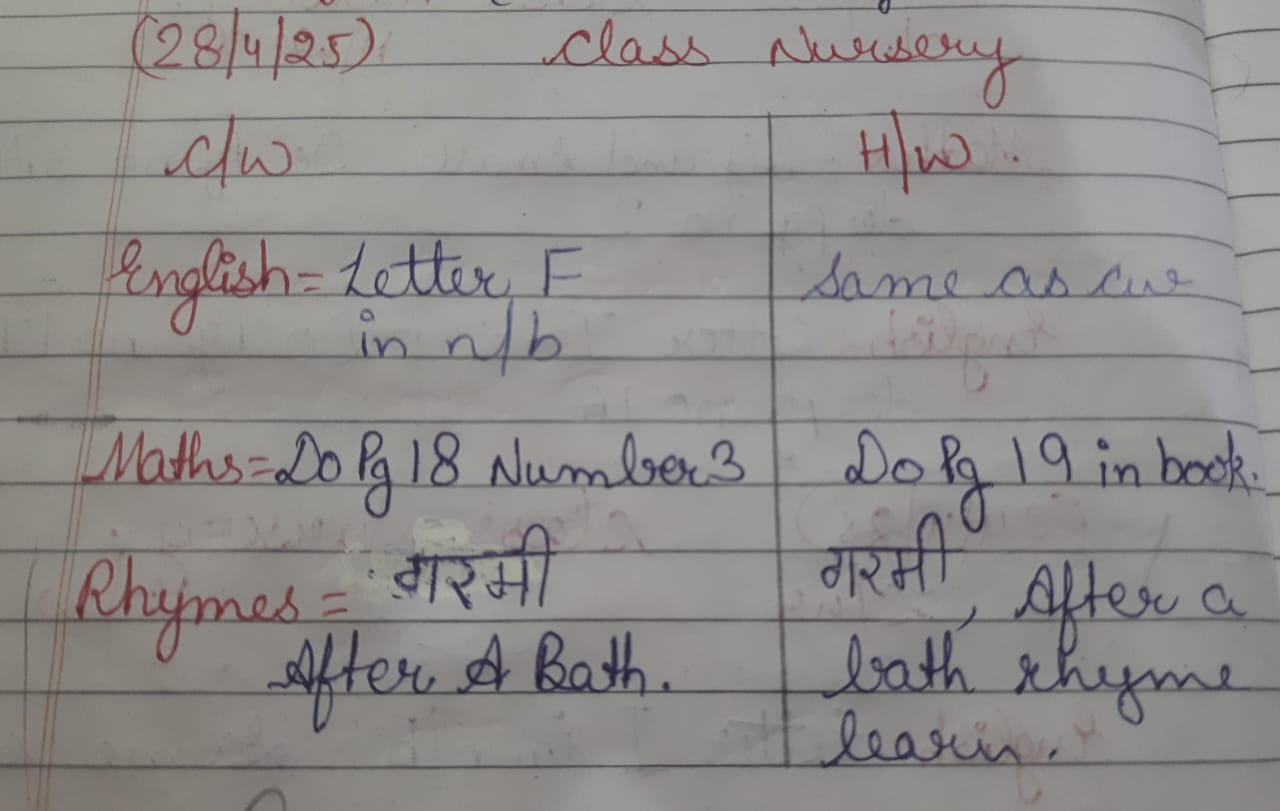 (28/4/25) Class Nursery
C/W H/W.
English = Letter F Same as cw
in n/b
Maths = Do Pg 18 Number 3 Do Pg 19 in book.
Rhymes = गरमी गरमी, After a
After A Bath. bath rhyme
learin.